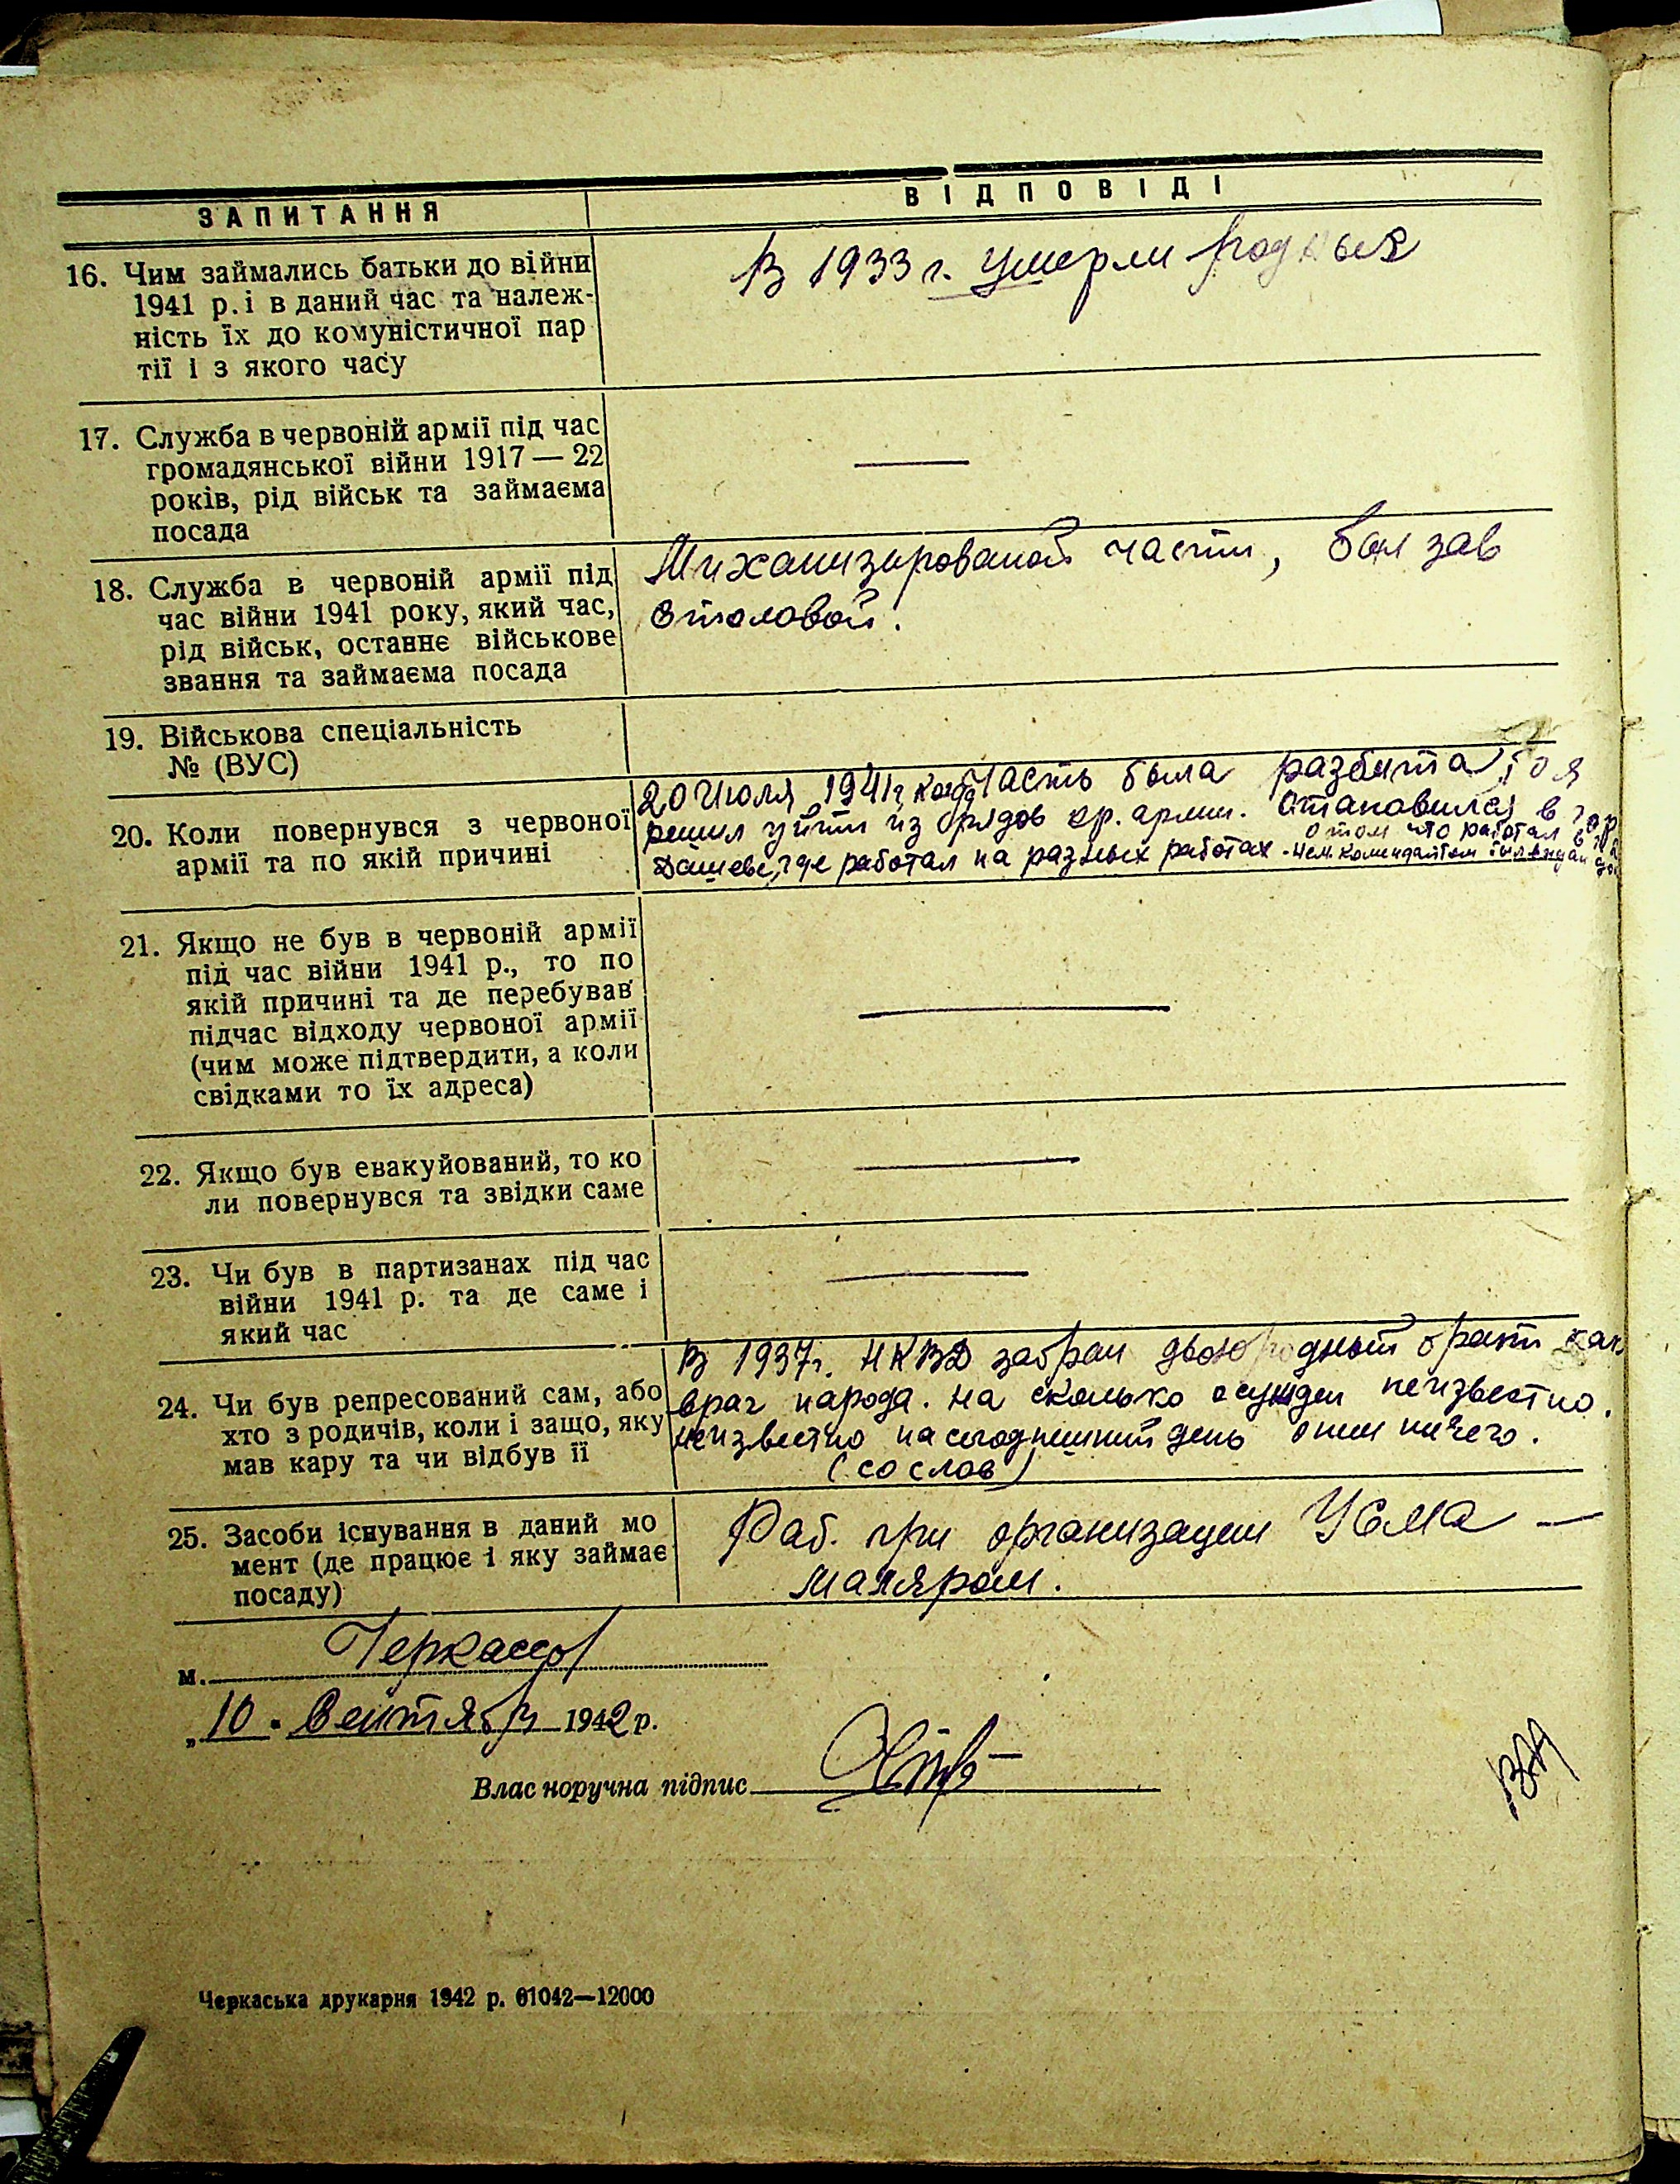 ЗАПИТАННЯ
ВІДПОВІДІ
16. Чим займались батьки до війни
1941 р. і в даний час та належ-
ність їх до комуністичної пар
тії і з якого часу
В 1933 г. умерли родные
17. Служба в червоній армії під час
громадянської війни 1917 — 22
років, рід військ та займаєма
посада
—
18. Служба в червоній армії під
час війни 1941 року, який час,
рід військ, останнє військове
звання та займаєма посада
Миханизированой части, был зав
столовой.
19. Військова спеціальність
№ (ВУС)
20. Коли повернувся з червоної
армії та по якій причині
20 Июля 1941 г, когда часть была разбита, то я
решил уйти из рядов кр. армии. Становился в гор
Дашеве, где работал на разных работах -
о том что работал в
нем. комендантом был выдан
21. Якщо не був в червоній армії
під час війни 1941 р., то по
якій причині та де перебував
підчас відходу червоної армії
(чим може підтвердити, а коли
свідками то їх адреса)
—
22. Якщо був евакуйований, то ко
ли повернувся та звідки саме
—
23. Чи був в партизанах під час
війни 1941 р. та де саме і
який час
—
24. Чи був репресований сам, або
хто з родичів, коли і защо, яку
мав кару та чи відбув її
В 1937г. НКВД забран двоюродный брат как
враг народа. на сколько осужден неизвестно.
неизвестно на сегоднешний день о нем ничего.
(со слов)
25. Засоби існування в даний мо
мент (де працює і яку займає
посаду)
Раб. при организации —
маляром.
м. Черкассы
„10. Сентября 1942 р.
Власноручна підпис
Черкаська друкарня 1942 р. 61042—12000